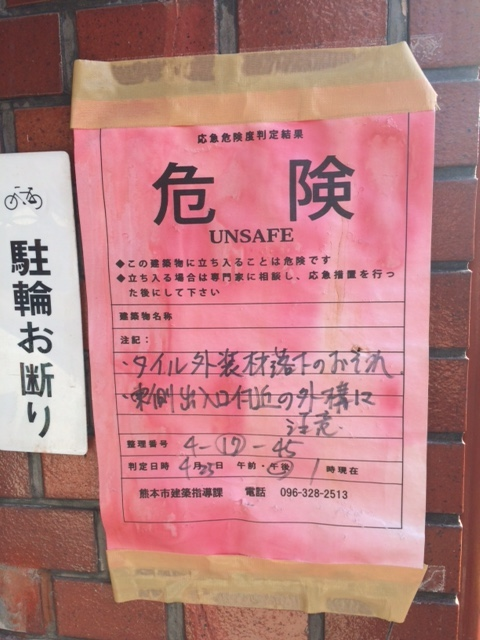 駐輪お断り
応急危険度判定結果
危険
UNSAFE
◆この建築物に立ち入ることは危険です
◆立ち入る場合は専門家に相談し、応急措置を行っ
た後にして下さい
建築物名称
注記:
・タイル外装材落下のおそれ
・東側出入口付近の外構に
注意
整理番号 4-⑰-45
判定日時 4月23日 午前・午後 1時現在
熊本市建築指導課 電話 096-328-2513